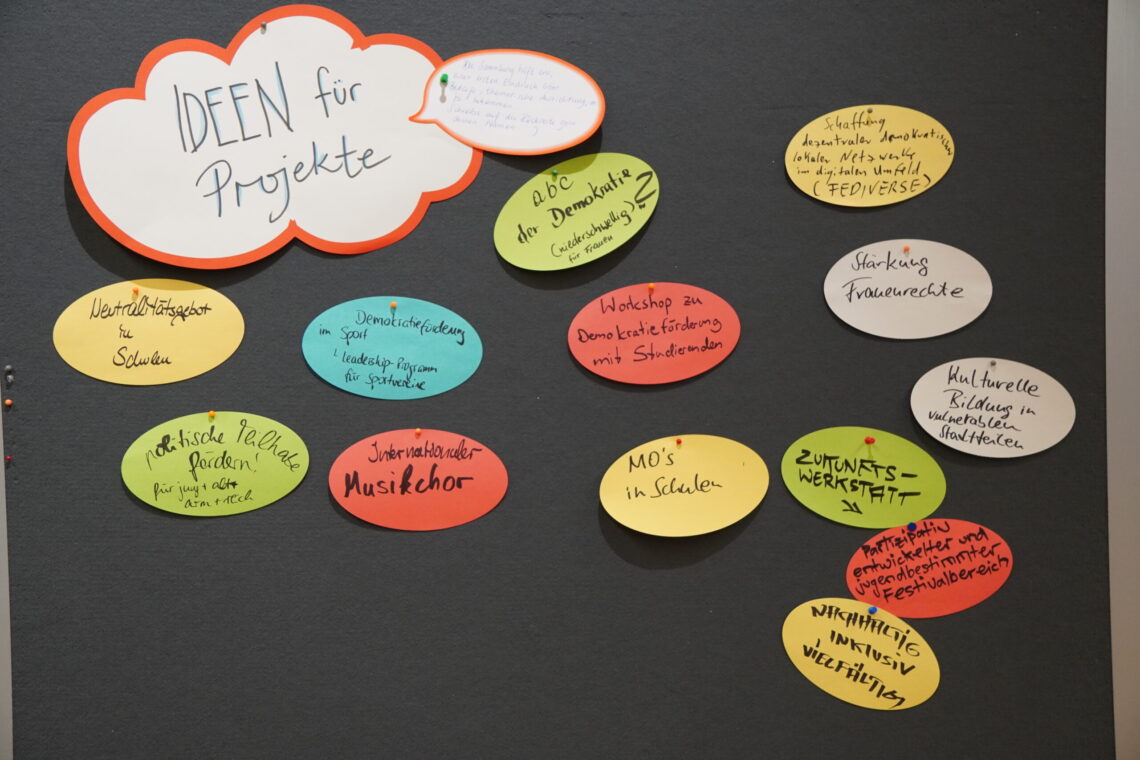 IDEEN für
Projekte
Die Sammlung hilft uns,
einen ersten Eindruck über
Bedarfe, thematische Ausrichtung, e
zu bekommen.
Schreibe auf die Rückseite gern
deinen Namen
abc
der Demokratie
(niederschwellig)
für Frauen
Schaffung
dezentraler demokratischer
lokaler Netzwerke
im digitalen Umfeld
(FEDIVERSE)
Stärkung
Frauenrechte
Neutralitätsgebot
in
Schulen
Demokratieförderung
im Sport
Leadership-Programm
für Sportvereine
Workshop zu
Demokratieförderung
mit Studierenden
Kulturelle
Bildung in
vulnerablen
Stadtteilen
politische Teilhabe
fördern!
für jung + alt +
arm + reich
Internationaler
Musikchor
MO's
in Schulen
ZUKUNFTS-
WERKSTATT
Partizipativ
entwickelter und
jugendbestimmter
Festivalbereich
NACHHALTIG
INKLUSIV
VIELFÄLTIG